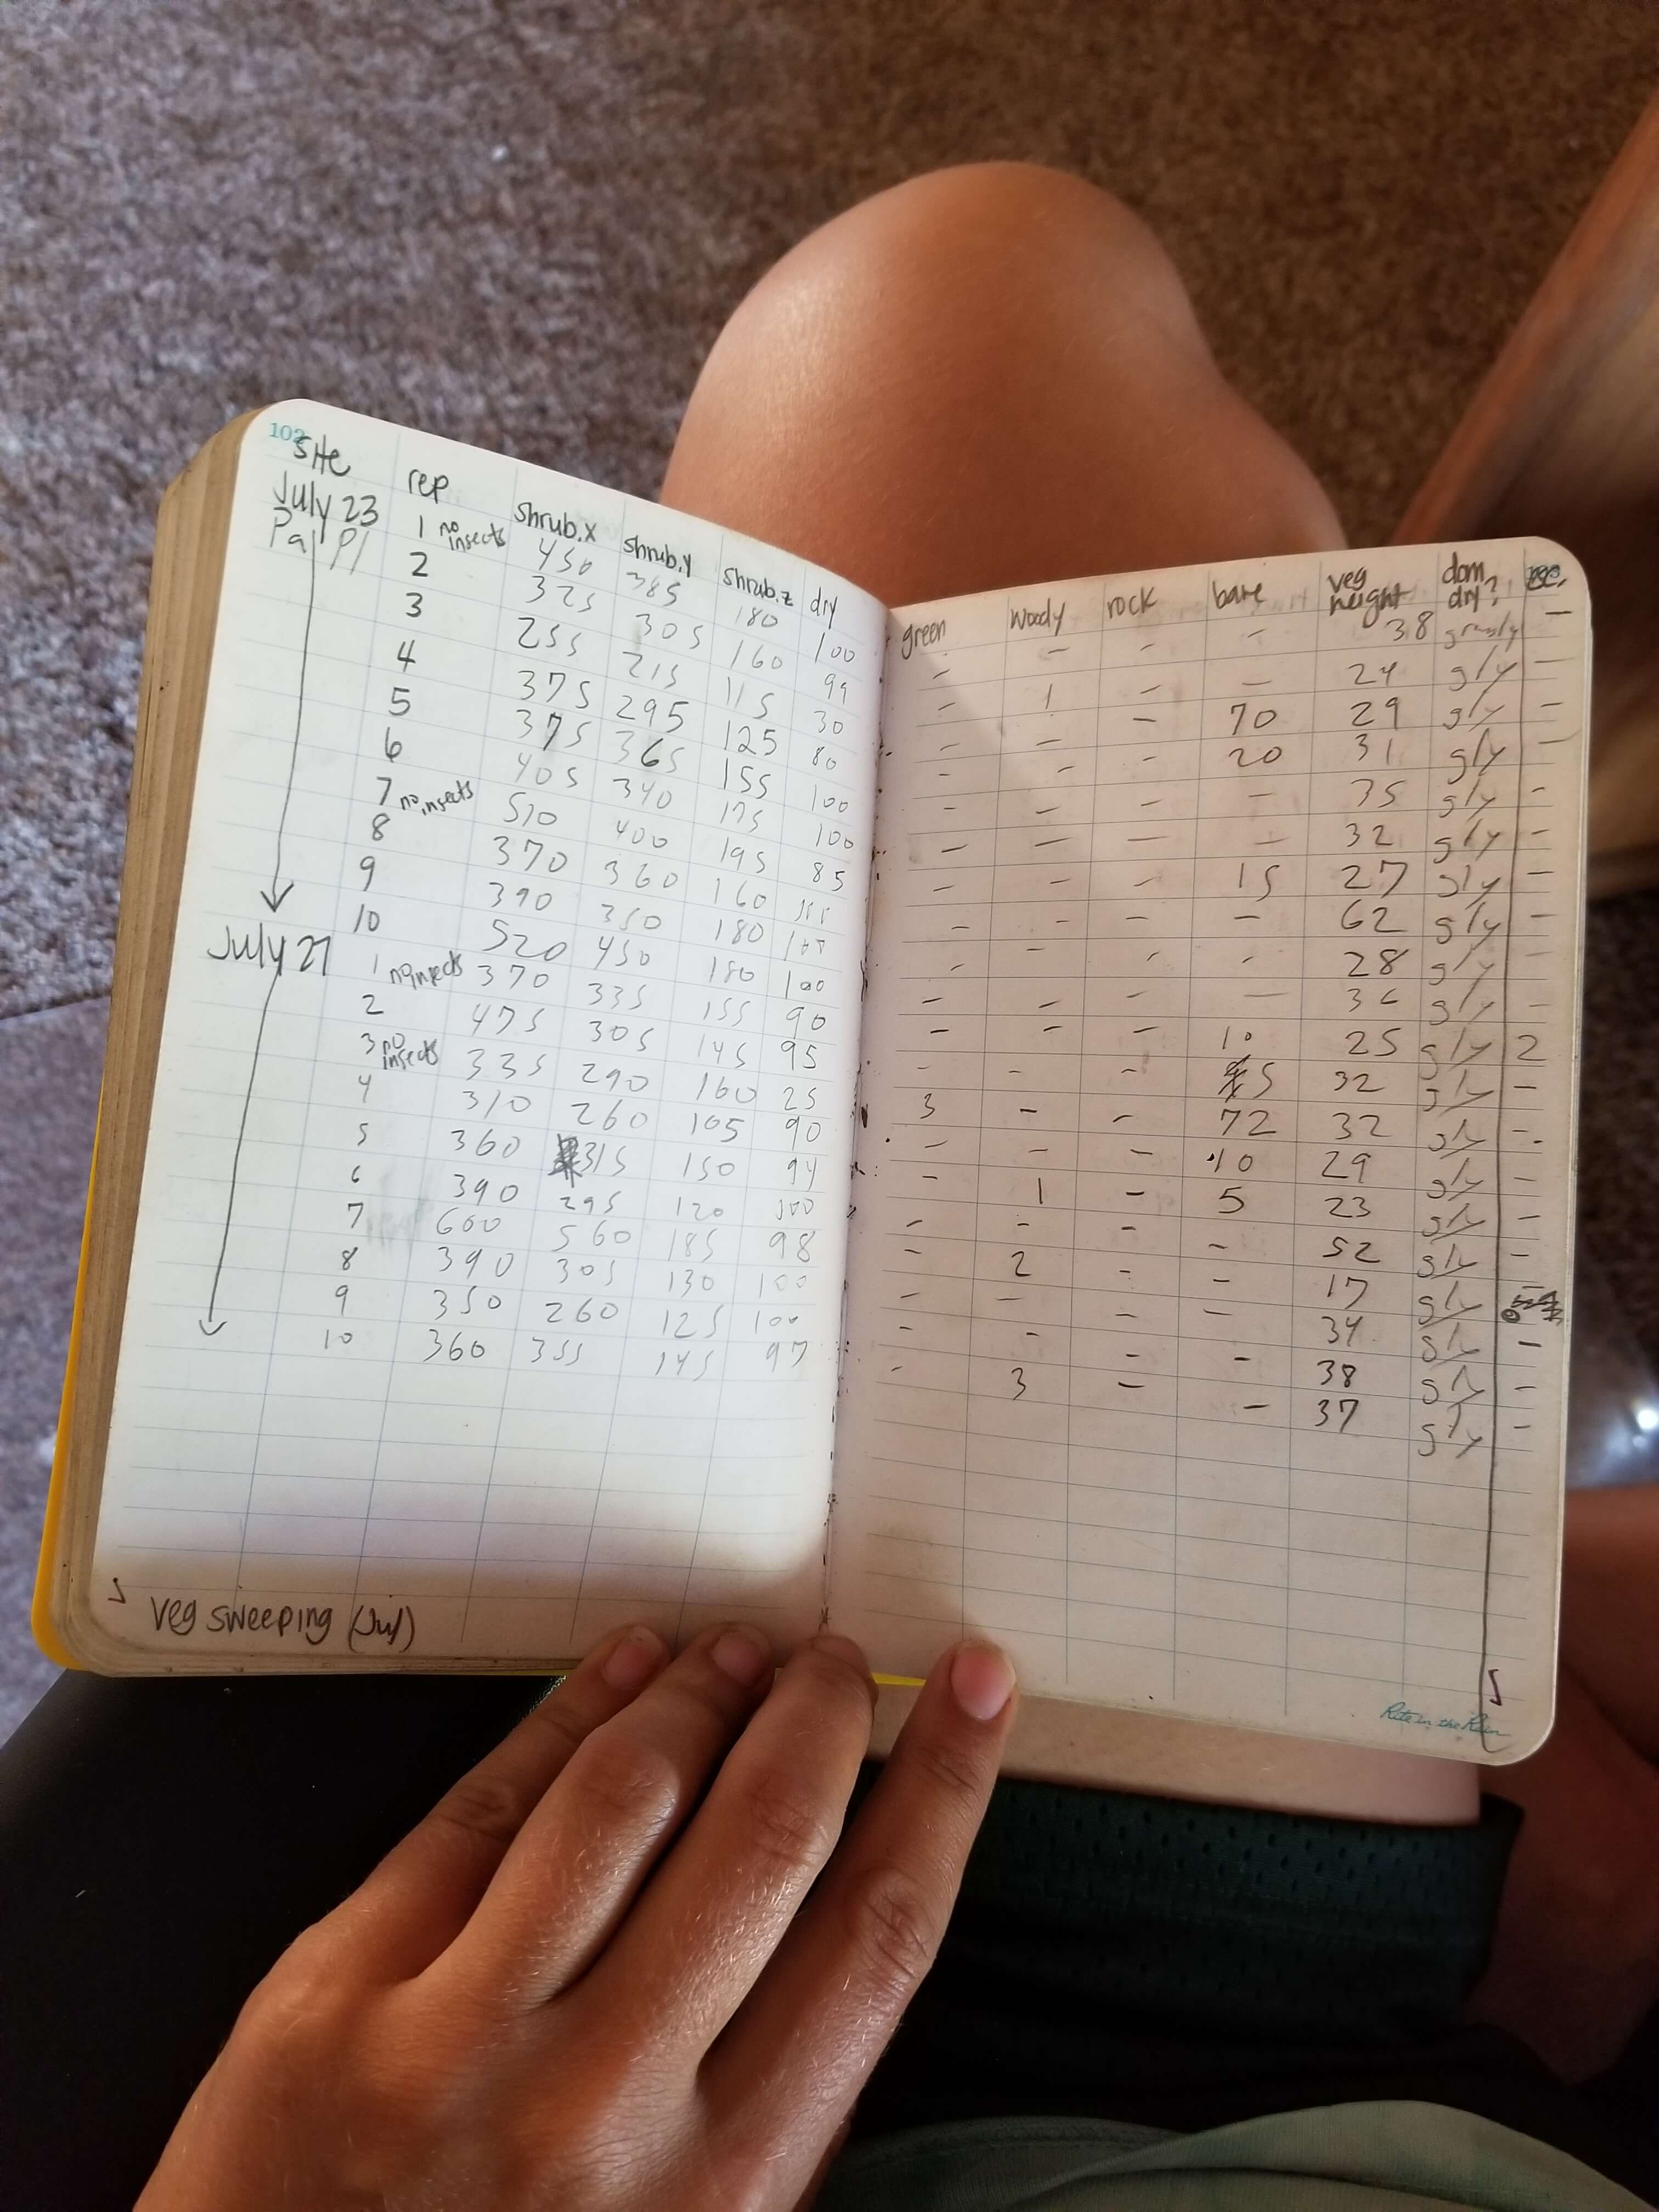 102
site rep shrub.x shrub.y shrub.z dry
July 23
1 no insects 450 385 180 100
2 325 305 160 99
3 255 215 115 30
4 375 295 125 80
5 375 365 155 100
6 405 340 175 100
7 no insects 510 400 195 85
8 370 360 160
9 390 350 180 100
10 520 450 180 100
July 27 1 no insects 370 335 155 90
2 475 305 145 95
3 no insects 335 290 160 25
4 310 260 105 90
5 360 315 150 94
6 390 295 120 100
7 600 560 185 98
8 390 305 130 100
9 350 260 125 100
10 360 355 145 97
veg sweeping (Jul)
green woody rock bare veg height dom dry?
- - - - 38 -
- 1 - - 24 gly -
- - - 70 29 gly -
- - - 20 31 gly -
- - - - 35 gly -
- - - - 32 gly -
- - - 15 27 gly -
- - - - 62 gly -
- - - - 28 gly -
- - - - 36 gly -
- - - 10 25 gly 2
- - - 5 32 gly -
3 - - 72 32 gly -
- - - 10 29 gly -
- 1 - 5 23 gly -
- - - - 52 gly -
- 2 - - 17 gly 0
- - - - 34 gly -
- - - - 38 gly -
- 3 - - 37 gly -
Rite in the Rain